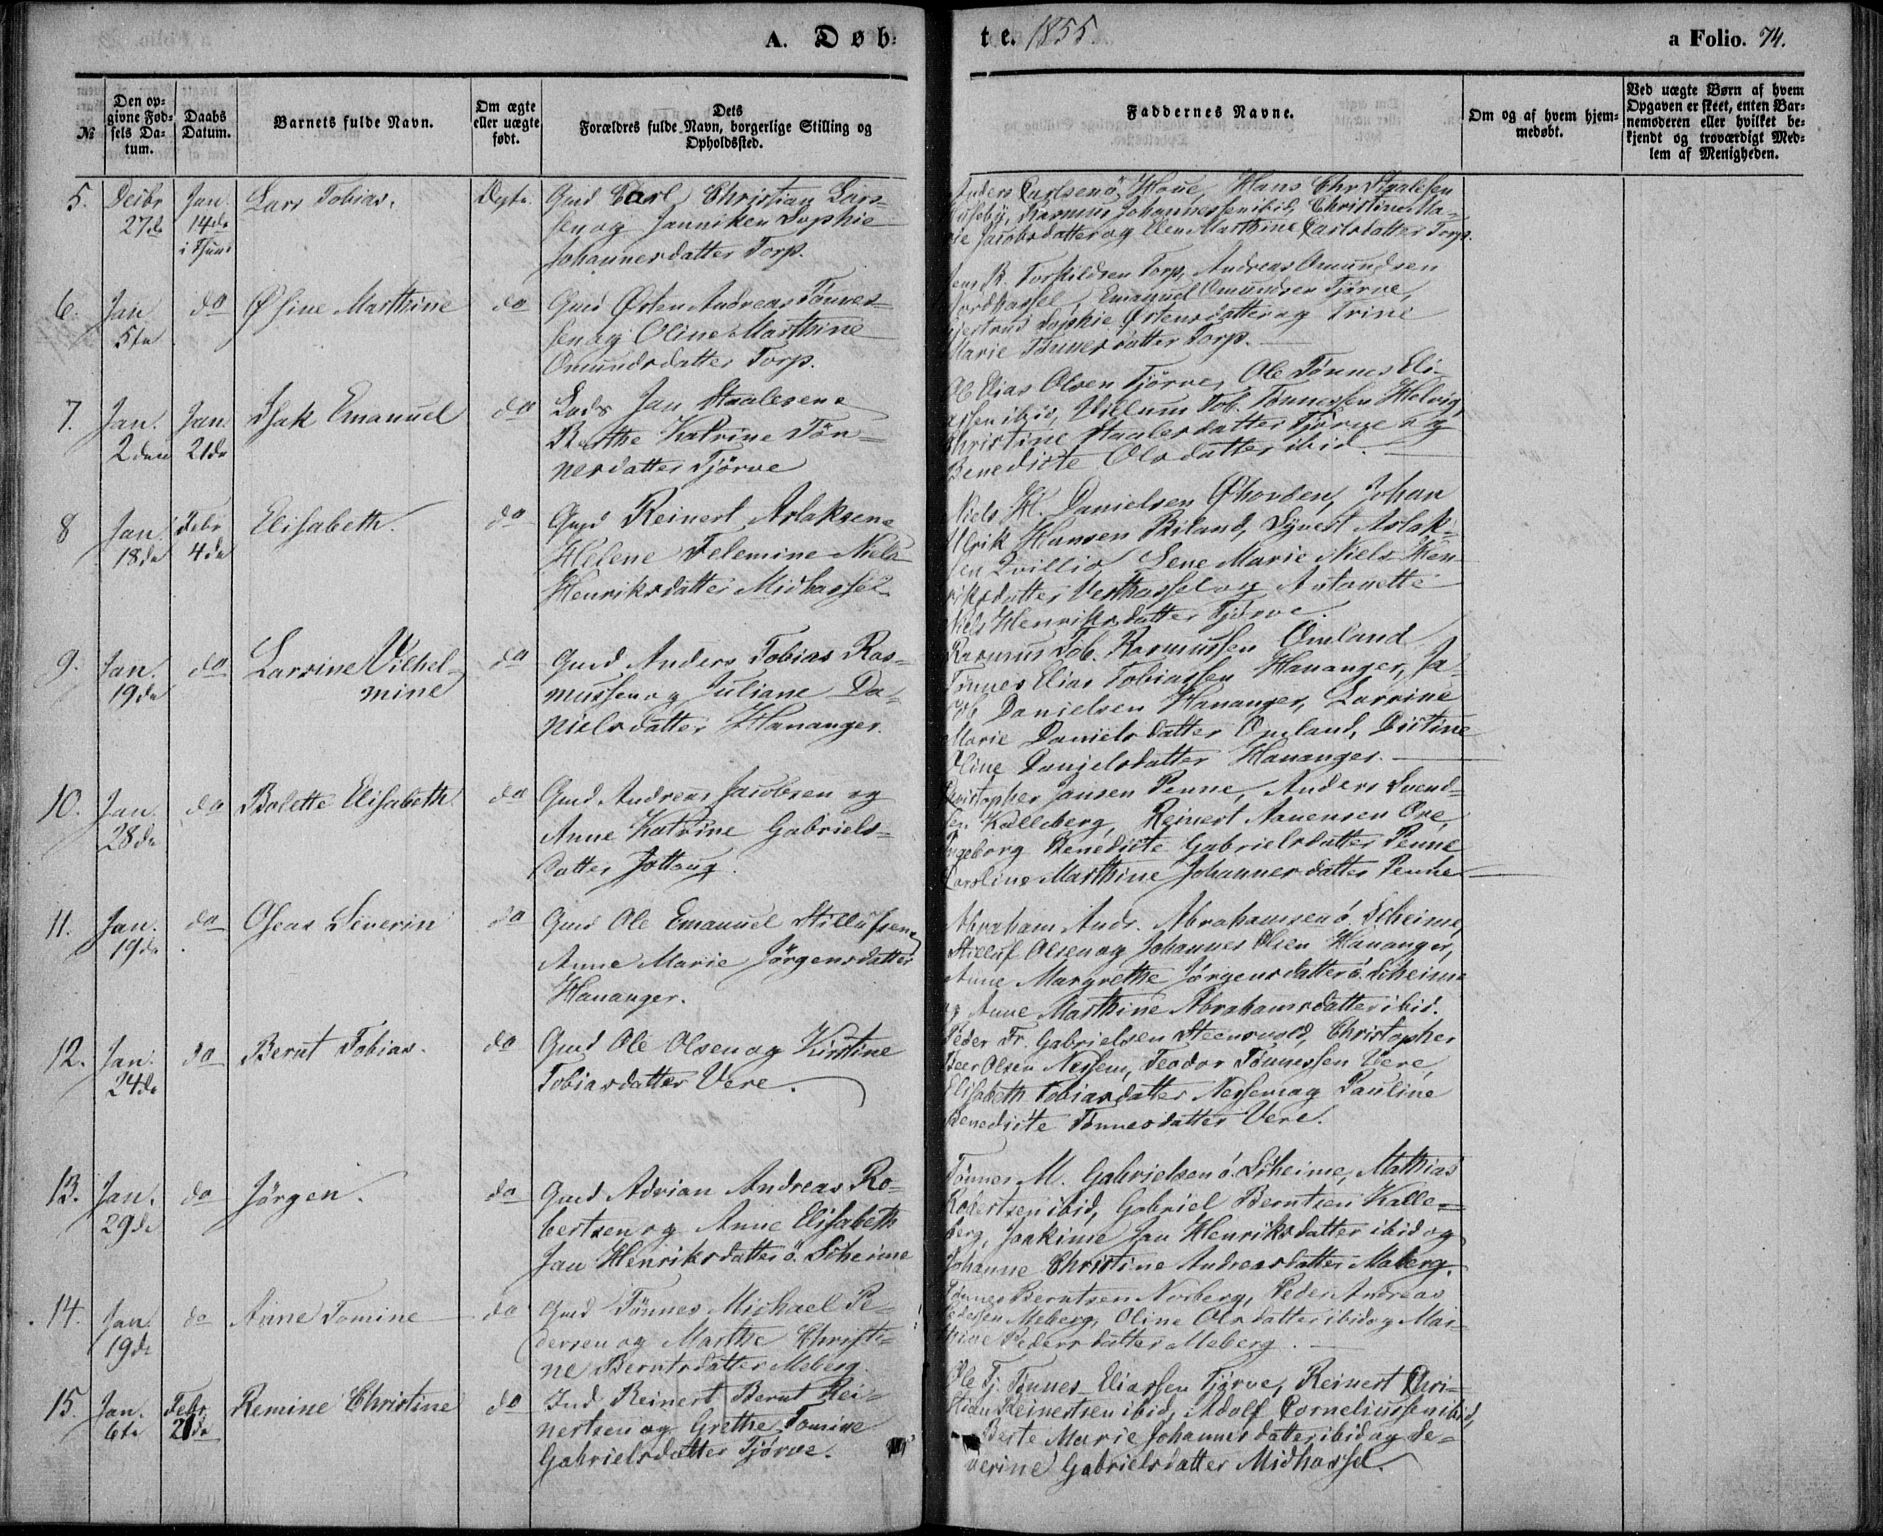 A. Døb-
te. 1855.
a Folio. 74.
№
Den op-
givne Fød-
sels Da-
tum.
Daabs
Datum.
Barnets fulde Navn.
Om ægte
eller uægte
født.
Dets
Forældres fulde Navn, borgerlige Stilling og
Opholdssted.
Faddernes Navne.
Om og af hvem hjem-
medøbt.
Ved uægte Børn af hvem
Opgaven er skeet, enten Bar-
nemoderen eller hvilket be-
kjendt og troværdigt Med-
lem af Menigheden.
5. Decbr 27de
Jan. 14de
Lars Tobias.
Ægte.
Gmd Carl Christian Lars-
sen og Janniken Sophie
Johannesdatter Torp.
Anders Carlsen Haue, Hans Chr Staalesen
Huseby, Rasmus Johannessen ibid, Christine Ma-
rie Jacobsdatter og Elen Marthine Carlsdatter Torp.
6. Jan 5te
do
Øsine Marthine
do
Gmd Østen Andreas Tønnes-
sen og Oline Marthine
Omundsdatter Torp.
Torkildsen Torp, Andreas Omundsen
Nordhassel, Emanuel Omundsen Tjørve,
Gjertrud Sophie Østensdatter og Trine
Marie Tønnesdatter Torp.
7. Jan. 2den
Jan. 21de
Isak Emanuel
do
Jan Staalesen
Berthe Katrine Tøn-
nesdatter Tjørve
Ole Elias Olsen Tjørve, Ole Tønnes Eli-
assen ibid, Villum Tob. Tønnessen Helvig,
Christine Staalesdatter Tjørve og
Benedicte Olsdatter ibid.
8 Jan. 18de
Febr 4de
Elisabeth.
do
Gmd Reinert Aslaksen
Helene Telemine Niels
Henriksdatter Midhassel
Niels H. Danielsen Øhovden, Johan
Ulrik Hansen Briland, Syvert Aslak-
sen Qvillio, Lene Marie Niels Hen-
riksdatter Vesthassel og Antonette
Niels Henriksdatter Tjørve.
9. Jan. 19de
do
Larsine Vilhel-
mine
do
Gmd Anders Tobias Ras-
mussen og Juliane Da-
nielsdatter Hananger.
Rasmus Tob. Rasmussen Omland
Tønnes Elias Tobiassen Hananger, Ja-
kob Danielsen Hananger, Larsine
Marie Danielsdatter Omland,
Oline Danielsdatter Hananger.
10. Jan. 28de
do
Bolette Elisabeth
do
Gmd Andreas Jacobsen og
Anne Katrine Gabriels-
datter Jottoug.
Christopher Jansen Penne, Anders Svend-
sen Kalleberg, Reinert Aanensen Ore,
Ingeborg Benedicte Gabrielsdatter Penne
Caroline Marthine Johannesdatter Penne
11. Jan. 19de
do
Oseas Severin
do
Gmd Ole Emanuel Stillufsen
Anne Marie Jørgensdatter
Hananger.
Abraham Andr. Abrahamsen ø. Skeime,
Stilluf Olsen og Johannes Olsen Hananger,
Anne Margrethe Jørgensdatter ø. Skeime
og Anne Marthine Abrahamsdatter ibid.
12. Jan. 24de
do
Bernt Tobias.
do
Gmd Ole Olsen og Kirstine
Tobiasdatter Vere.
Peder Fr. Gabrielsen Steensvold, Christopher
Peer Olsen Nessem, Teodor Tønnessen Vere,
Elisabeth Tobiasdatter Nessem og Pauline
Benedicte Tønnesdatter Vere.
13. Jan. 29de
do
Jørgen.
do
Gmd Adrian Andreas Ro-
bertsen og Anne Elisabeth
Jan Henriksdatter ø. Skeime
Tønnes M. Gabrielsen ø. Skeime, Mathias
Robertsen ibid, Gabriel Berntsen Kalle-
berg, Joakime Jan Henriksdatter ibid og
Johanne Christine Andreasdatter Maberg.
14. Jan 19de
do
Anne Tomine
do
Gmd Tønnes Michael Pe-
dersen og Marthe Christi-
ne Berntsdatter Meberg.
Tønnes Berntsen Norberg, Peder Andreas
Pedersen Meberg, Oline Olsdatter ibid og Mar-
thine Pedersdatter Meberg.
15. Jan. 6te
Febr. 21de
Remine Christine
do
Ind Reinert Bernt Rei-
nertsen og Grethe Tomine
Gabrielsdatter Tjørve.
Ole Tj. Tønnes Eliassen Tjørve, Reinert Chri-
stian Reinertsen ibid, Adolf Corneliussen ibid,
Berte Marie Johannesdatter ibid og Se-
verine Gabrielsdatter Midhassel.